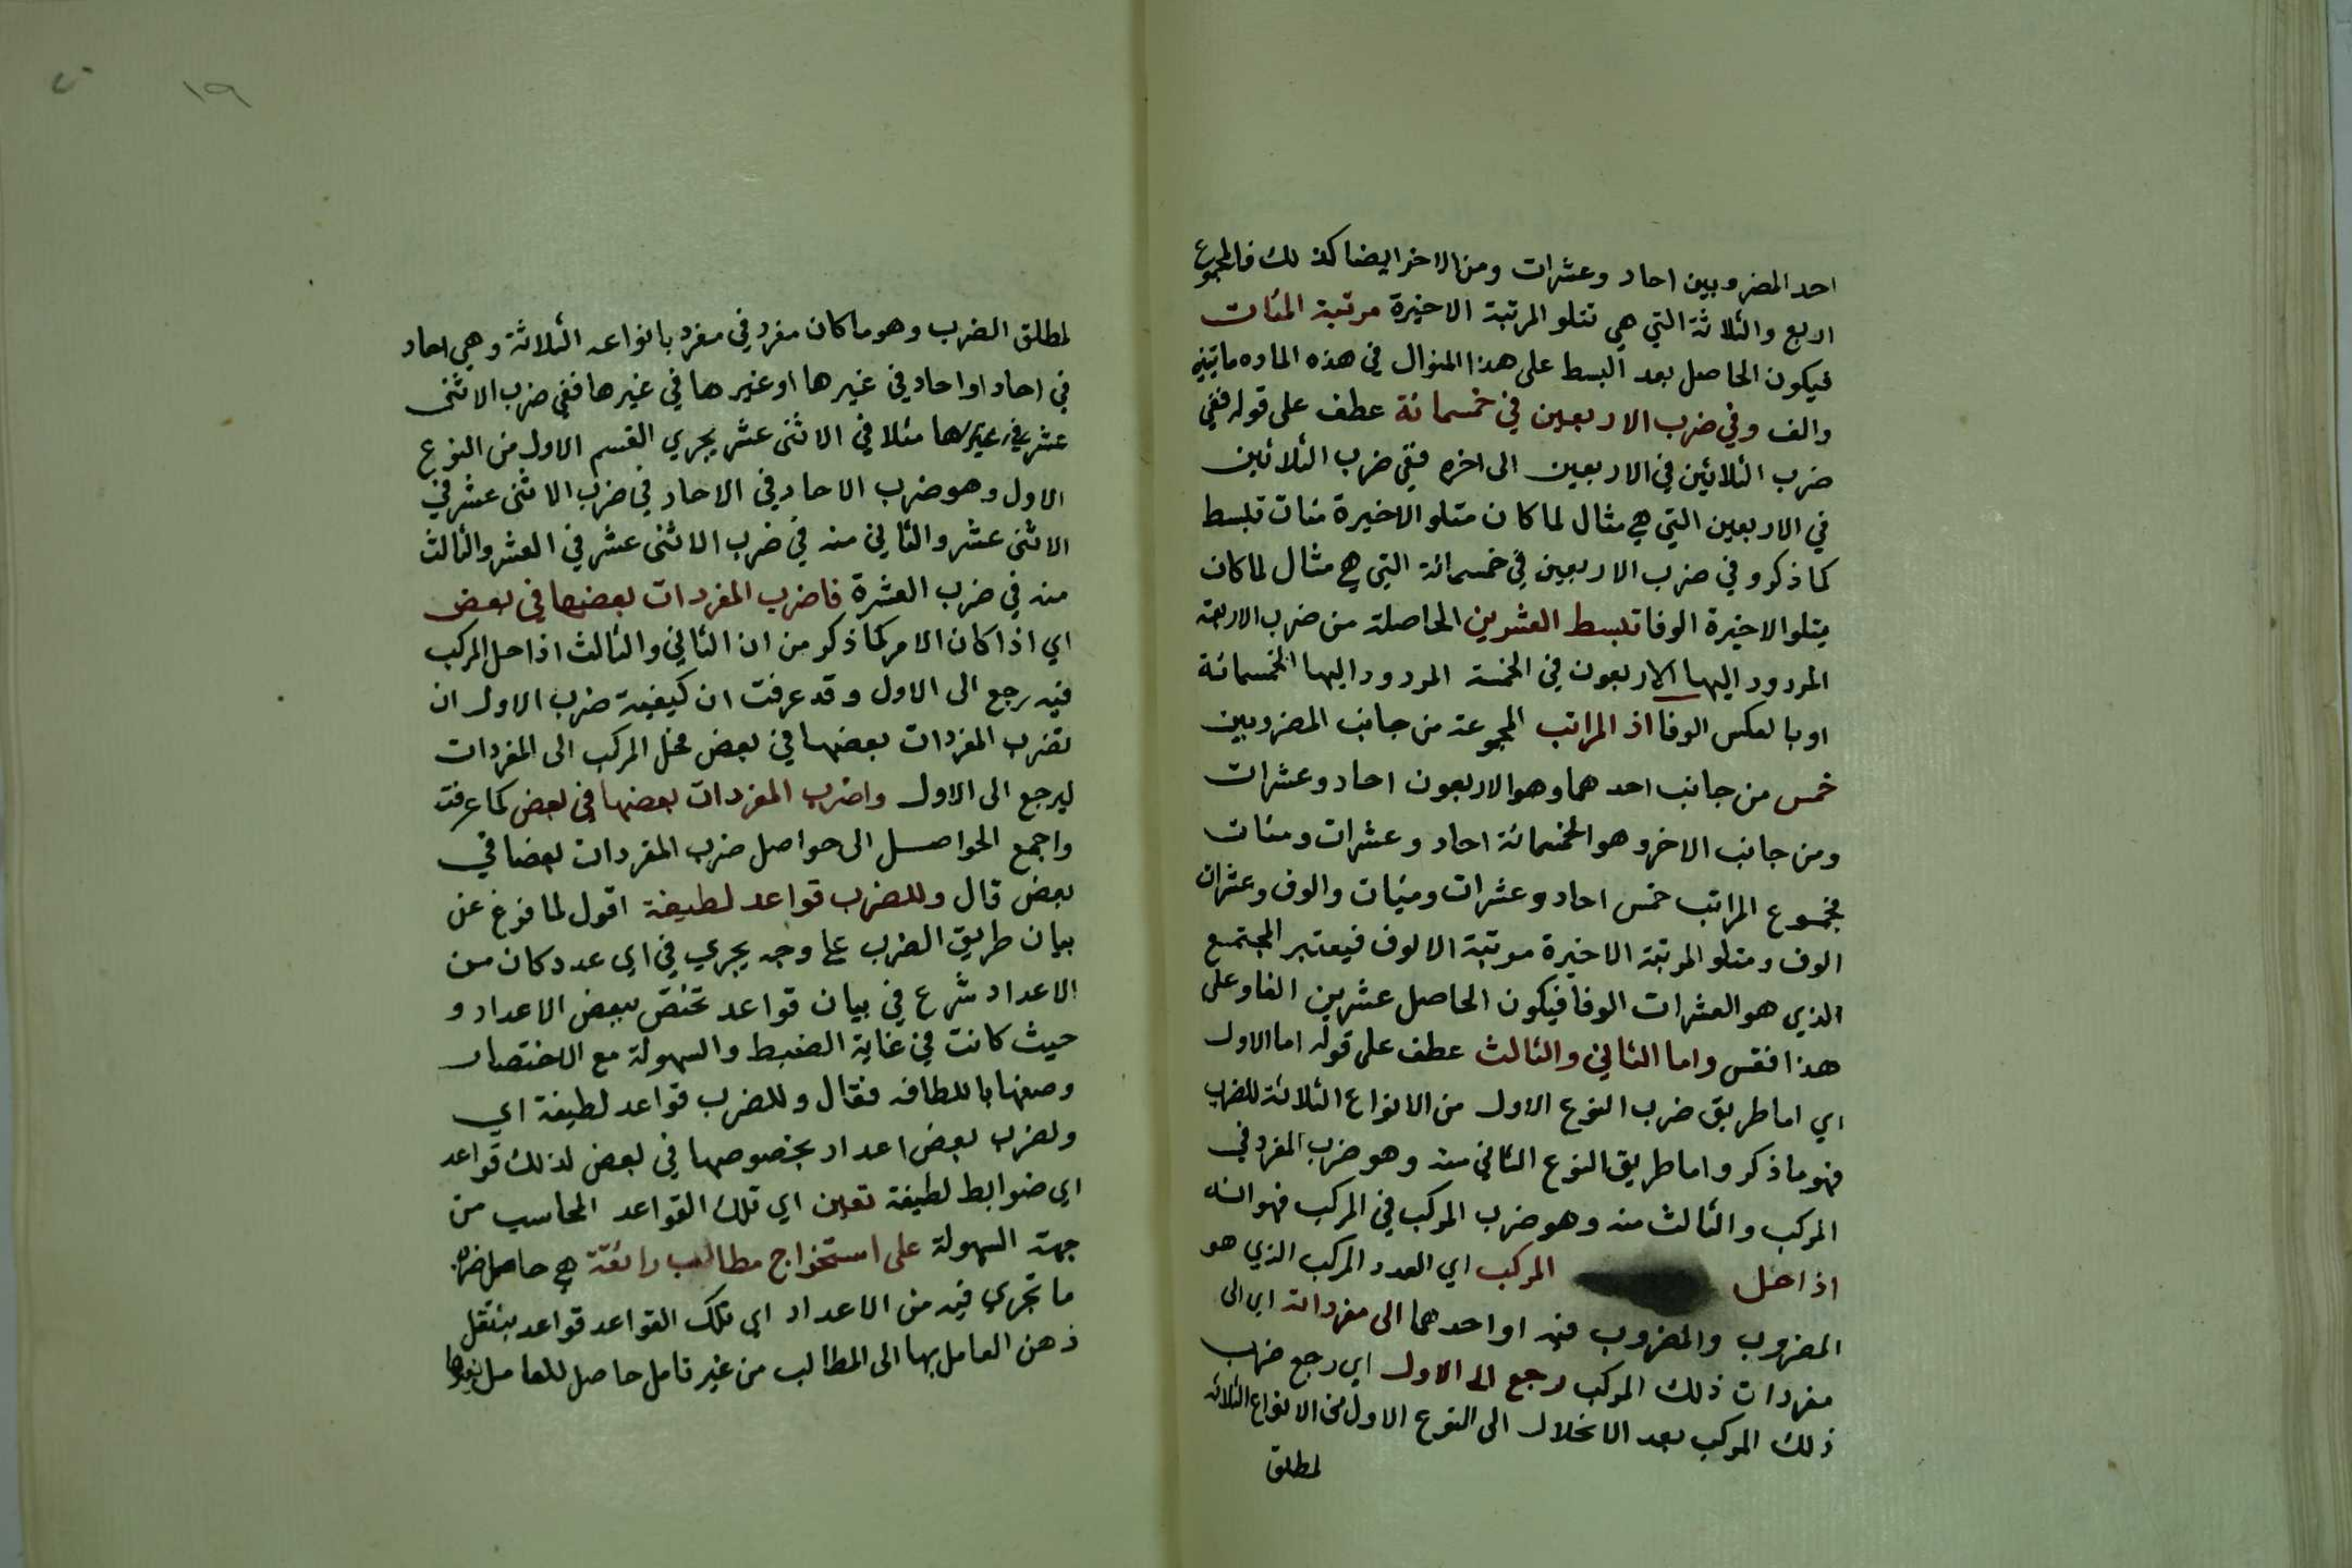 احد المضروبين احاد وعشرات ومن الاخر ايضا كذلك فالمجموع
اربع والثلاثة التي هي تتلو المرتبة الاخيرة مرتبة المئات
فيكون الحاصل بعد البسط على هذا المنوال في هذه الماده ماتين
والف وفي ضرب الاربعين في خمسمائة عطف على قوله ففي
ضرب الثلاثين في الاربعين الى اخره ففي ضرب الثلاثين
في الاربعين التي هي مثال لما كان متلو الاخيرة مئات تبسط
كما ذكر وفي ضرب الاربعين في خمسمائة التي هي مثال لما كان
يتلو الاخيرة الوفا تبسط العشرين الحاصلة من ضرب الاربعة
المردود اليها الاربعون في الخمسة المردود اليها الخمسمائة
او بالعكس الوفا اذ المراتب المجموعة من جانب المضروبين
خمس من جانب احدهما وهو الاربعون احاد وعشرات
ومن جانب الاخر وهو الخمسمائة احاد وعشرات ومئات
فمجموع المراتب خمس احاد وعشرات ومئات والوف وعشرات
الوف ومتلو المرتبة الاخيرة مرتبة الالوف فيعتبر المجتمع
الذي هو العشرات الوفا فيكون الحاصل عشرين الفا وعلى
هذا فقس واما الثاني والثالث عطف على قوله اما الاول
اي اما طريق ضرب النوع الاول من الانواع الثلاثة للضرب
فهو ما ذكر واما طريق النوع الثاني منه وهو ضرب المفرد في
المركب والثالث منه وهو ضرب المركب في المركب فهو انه
اذا حل المركب اي العدد المركب الذي هو
المضروب والمضروب فيه او احدهما الى مفرداته اي الى
مفردات ذلك المركب رجع الى الاول اي رجع ضرب
ذلك المركب بعد الانحلال الى النوع الاول من الانواع الثلاثة
لمطلق
١٩
لمطلق الضرب وهو ما كان مفرد في مفرد بانواعه الثلاثة وهي احاد
في احاد او احاد في غيرها او غيرها في غيرها ففي ضرب الاثنى
عشر في غيرها مثلا في الاثنى عشر يجري القسم الاول من النوع
الاول وهو ضرب الاحاد في الاحاد في ضرب الاثنى عشر في
الاثنى عشر والثاني منه في ضرب الاثنى عشر في العشر والثالث
منه في ضرب العشرة فاضرب المفردات بعضها في بعض
اي اذا كان الامر كما ذكر من ان الثاني والثالث اذا حل المركب
فيه رجع الى الاول وقد عرفت ان كيفية ضرب الاول ان
تضرب المفردات بعضها في بعض فحل المركب الى المفردات
ليرجع الى الاول واضرب المفردات بعضها في بعض كما عرفت
واجمع الحواصل الى حواصل ضرب المفردات بعضا في
بعض قال وللضرب قواعد لطيفة اقول لما فرغ عن
بيان طريق الضرب على وجه يجري في اي عدد كان من
الاعداد شرع في بيان قواعد تختص ببعض الاعداد و
حيث كانت في غاية الضبط والسهولة مع الاختصار
وصفها باللطافه فقال وللضرب قواعد لطيفة اي
ولضرب بعض اعداد بخصوصها في بعض لذلك قواعد
اي ضوابط لطيفة تعين اي تلك القواعد المحاسب من
جهة السهولة على استخراج مطالب رائقة هي حاصل ضرب
ما تجري فيه من الاعداد اي تلك القواعد قواعد ينتقل
ذهن العامل بها الى المطالب من غير تامل حاصل للعامل